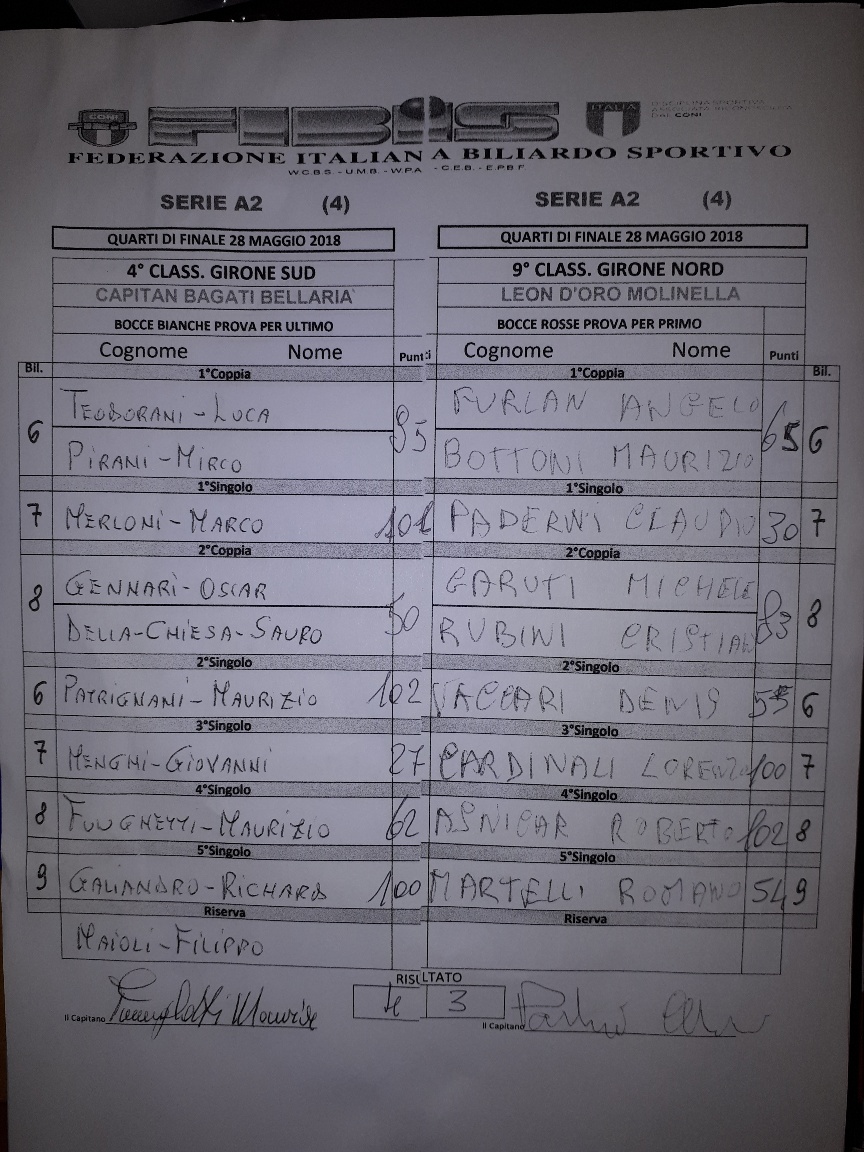 CONI FIBiS ITALIA DISCIPLINA SPORTIVA
ASSOCIATA RICONOSCIUTA
DAL CONI
FEDERAZIONE ITALIANA BILIARDO SPORTIVO
W.C.B.S. - U.M.B. - W.P.A. - C.E.B. - E.P.B.F
SERIE A2 (4) SERIE A2 (4)
QUARTI DI FINALE 28 MAGGIO 2018 QUARTI DI FINALE 28 MAGGIO 2018
4° CLASS. GIRONE SUD 9° CLASS. GIRONE NORD
CAPITAN BAGATI BELLARIA LEON D'ORO MOLINELLA
BOCCE BIANCHE PROVA PER ULTIMO BOCCE ROSSE PROVA PER PRIMO
Cognome Nome Punti Cognome Nome Punti
Bil. 1°Coppia 1°Coppia Bil.
TEODORANI-LUCA FURLAN ANGELO
6 85 65 6
PIRANI-MIRCO BOTTONI MAURIZIO
1°Singolo 1°Singolo
7 MERLONI-MARCO 101 PADERNI CLAUDIO 30 7
2°Coppia 2°Coppia
GENNARI-OSCAR GARUTI MICHELE
8 50 83 8
DELLA-CHIESA-SAURO RUBINI CRISTIAN
2°Singolo 2°Singolo
6 PATRIGNANI-MAURIZIO 102 VACCARI DENIS 6
3°Singolo 3°Singolo
7 MENGHI-GIOVANNI 27 CARDINALI LORENZO 100 7
4°Singolo 4°Singolo
8 MAURIZIO 62 ASNICAR ROBERTO 102 8
5°Singolo 5°Singolo
9 GALIANDRO-RICHARD 100 MARTELLI ROMANO 54 9
Riserva Riserva
MAIOLI-FILIPPO
RISULTATO
4 3
Il Capitano Il Capitano